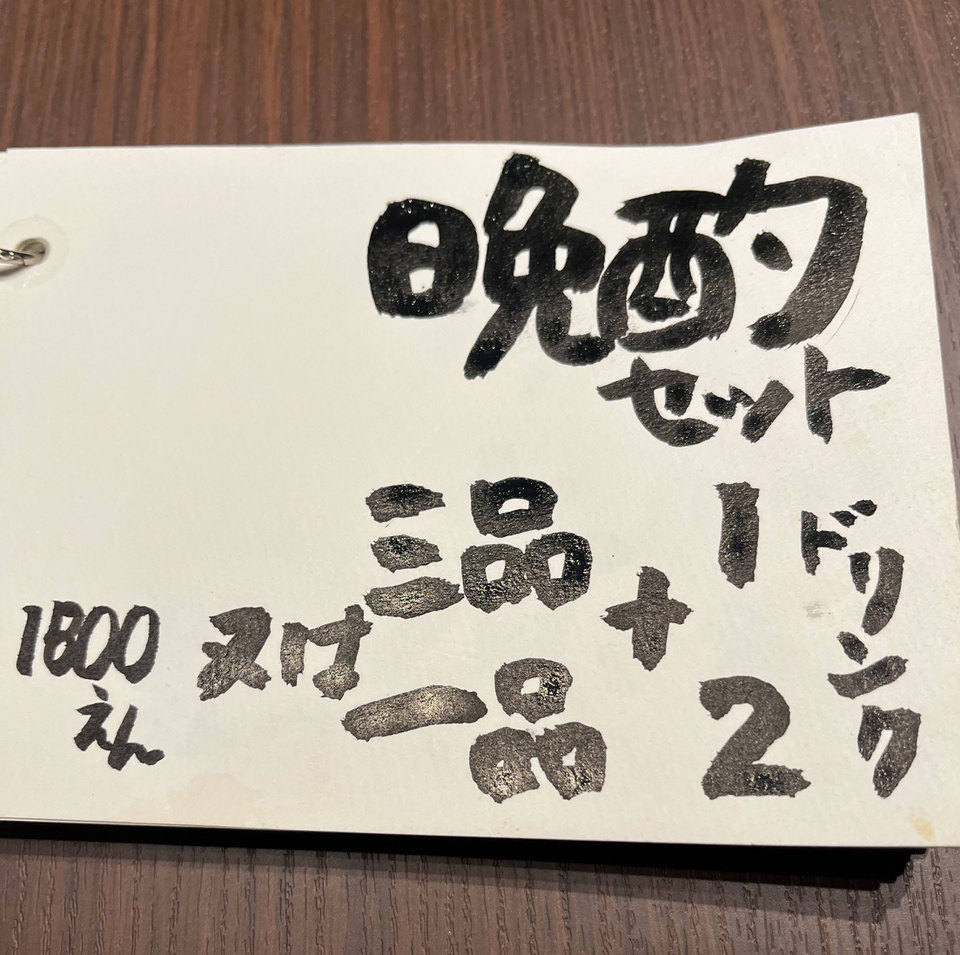 晩酌
セット
三品 + 1 ドリンク
又は
一品 2
1800
えん